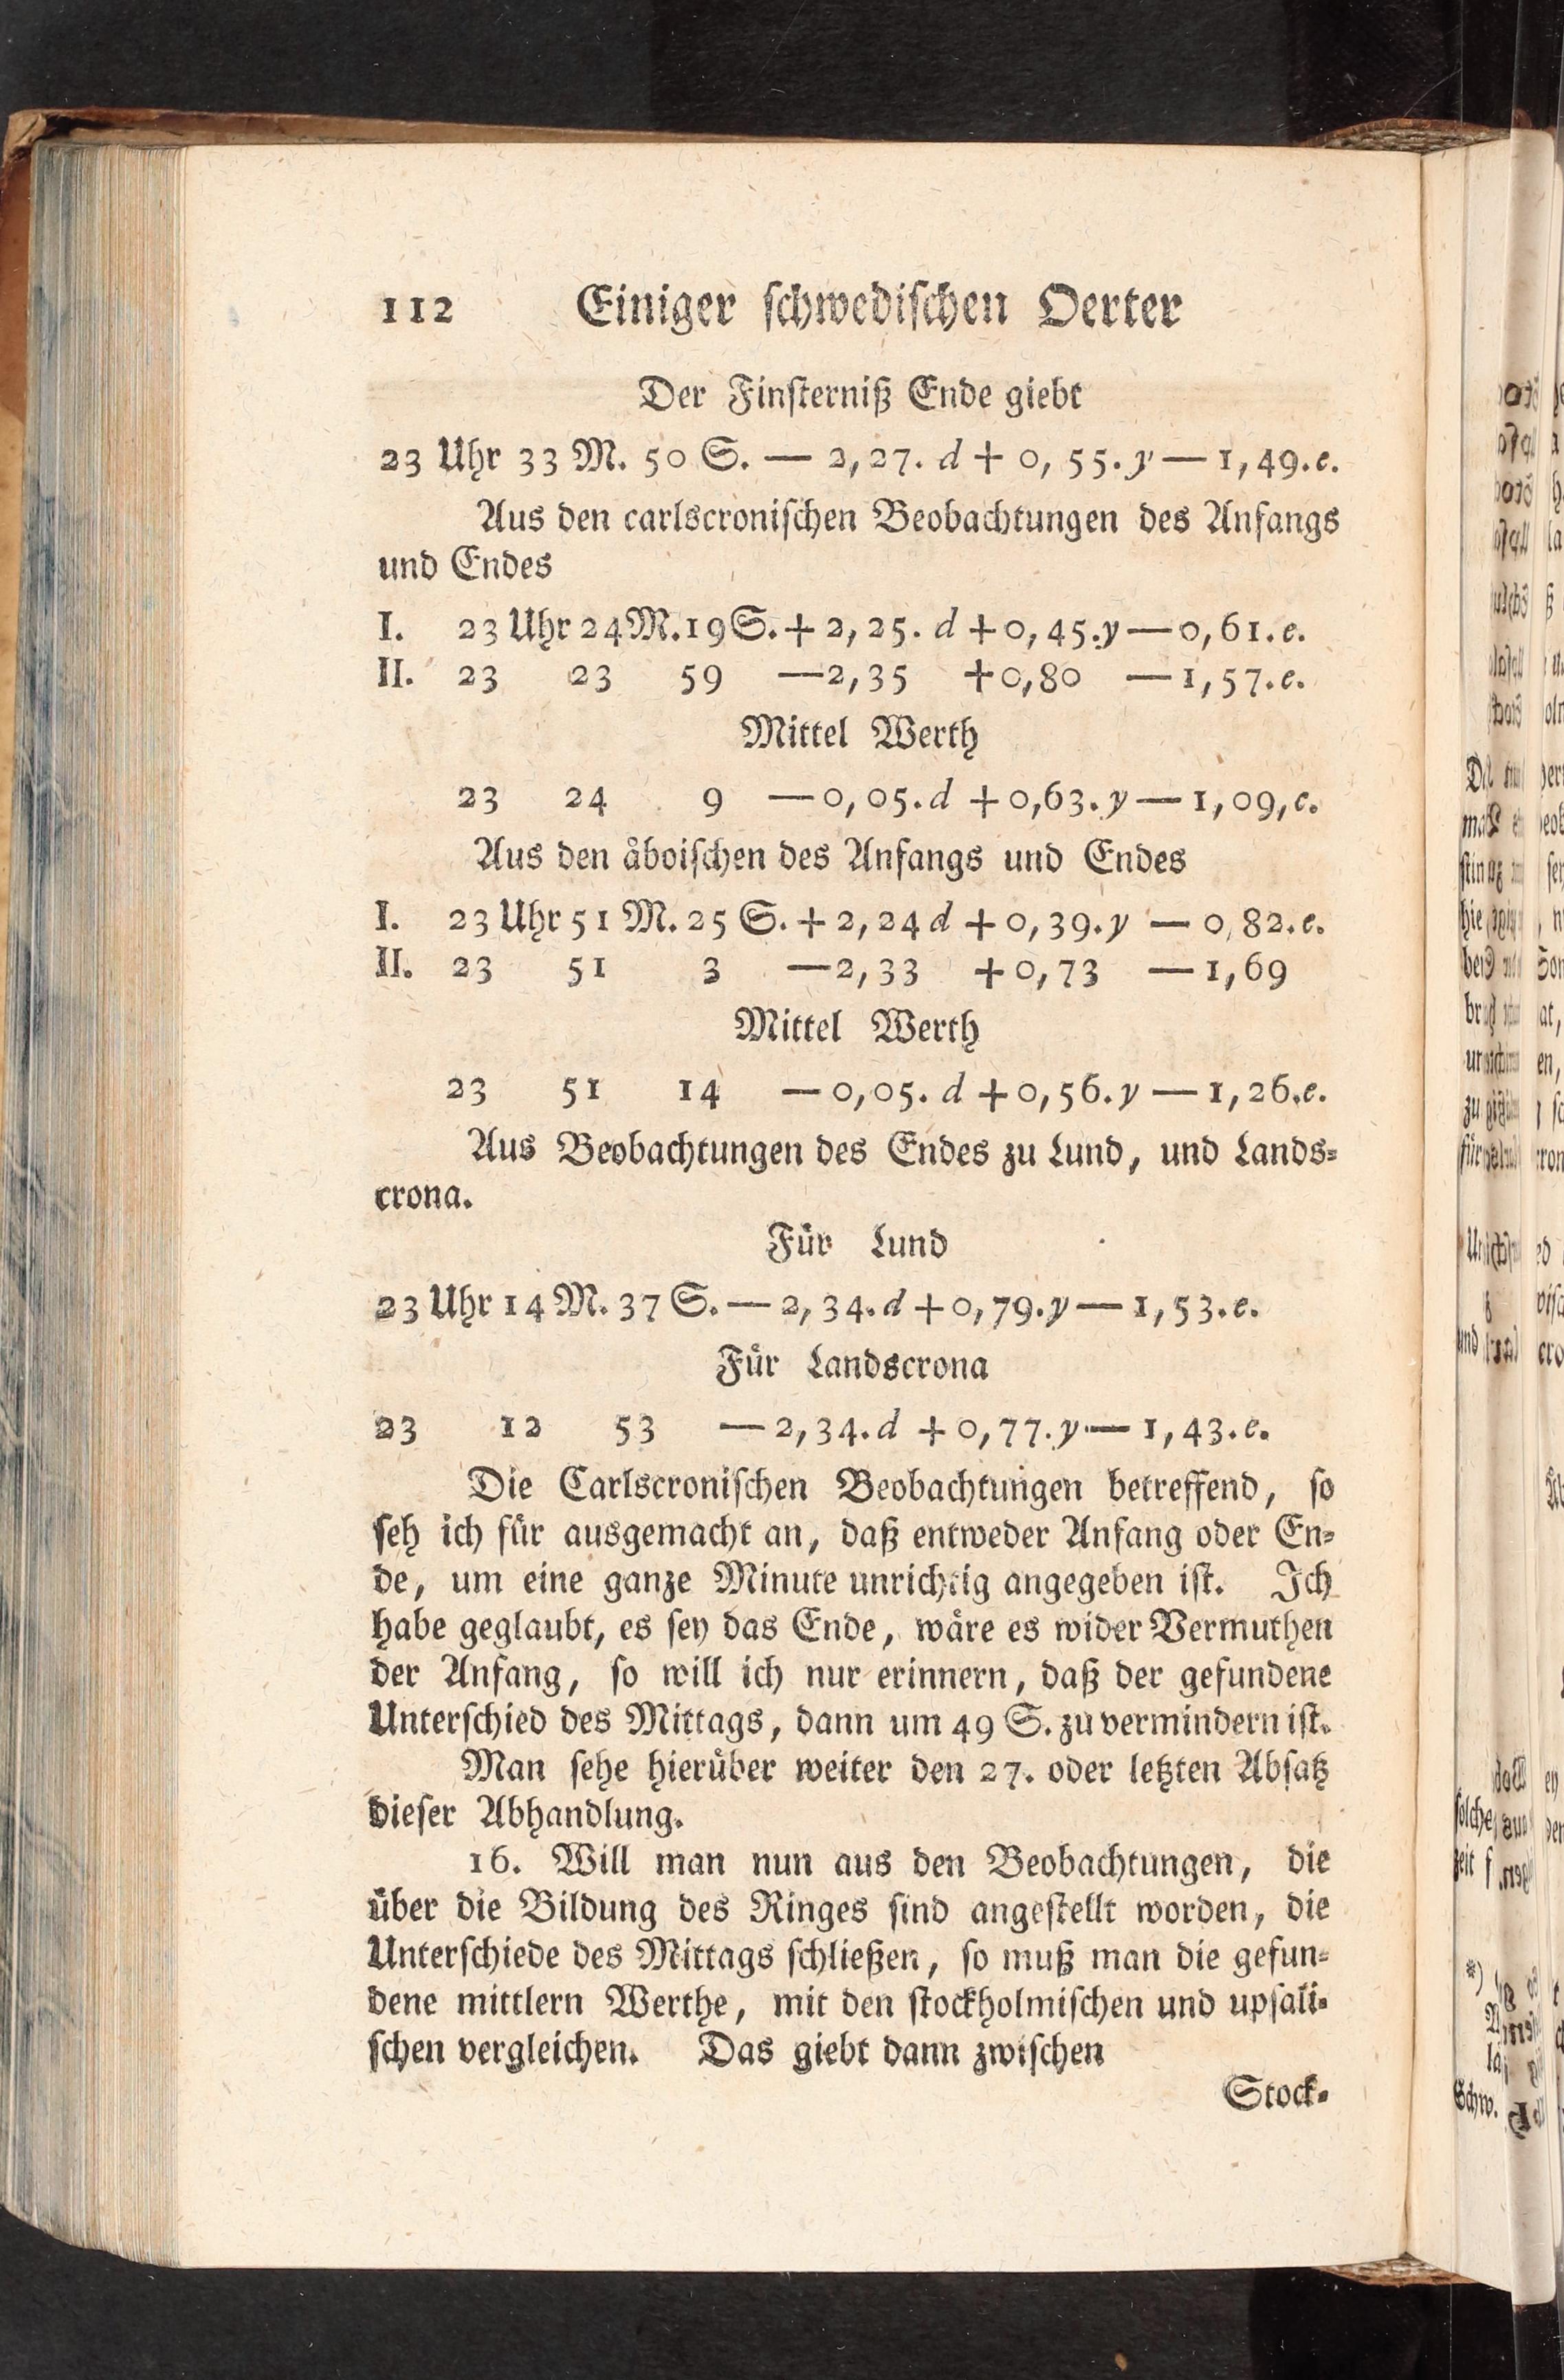 112 Einiger schwedischen Oerter
Der Finsterniß Ende giebt
23 Uhr 33 M. 50 S. — 2,27. d + 0, 55. y — 1,49. e.
Aus den carlscronischen Beobachtungen des Anfangs
und Endes
I. 23 Uhr 24 M. 19 S. + 2,25. d + 0,45. y — 0,61. e.
II. 23 23 59 — 2,35 + 0,80 — 1,57. e.
Mittel Werth
23 24 9 — 0,05. d + 0,63. y — 1,09, e.
Aus den åboischen des Anfangs und Endes
I. 23 Uhr 51 M. 25 S. + 2,24 d + 0,39. y — 0,82. e.
II. 23 51 3 — 2,33 + 0,73 — 1,69
Mittel Werth
23 51 14 — 0,05. d + 0,56. y — 1,26. e.
Aus Beobachtungen des Endes zu Lund, und Lands-
crona.
Für Lund
23 Uhr 14 M. 37 S. — 2,34. d + 0,79. y — 1,53. e.
Für Landscrona
23 12 53 — 2,34. d + 0,77. y — 1,43. e.
Die Carlscronischen Beobachtungen betreffend, so
seh ich für ausgemacht an, daß entweder Anfang oder En-
de, um eine ganze Minute unrichtig angegeben ist. Ich
habe geglaubt, es sey das Ende, wäre es wider Vermuthen
der Anfang, so will ich nur erinnern, daß der gefundene
Unterschied des Mittags, dann um 49 S. zu vermindern ist.
Man sehe hierüber weiter den 27. oder letzten Absatz
dieser Abhandlung.
16. Will man nun aus den Beobachtungen, die
über die Bildung des Ringes sind angestellt worden, die
Unterschiede des Mittags schließen, so muß man die gefun-
dene mittlern Werthe, mit den stockholmischen und upsali-
schen vergleichen. Das giebt dann zwischen
Stock-